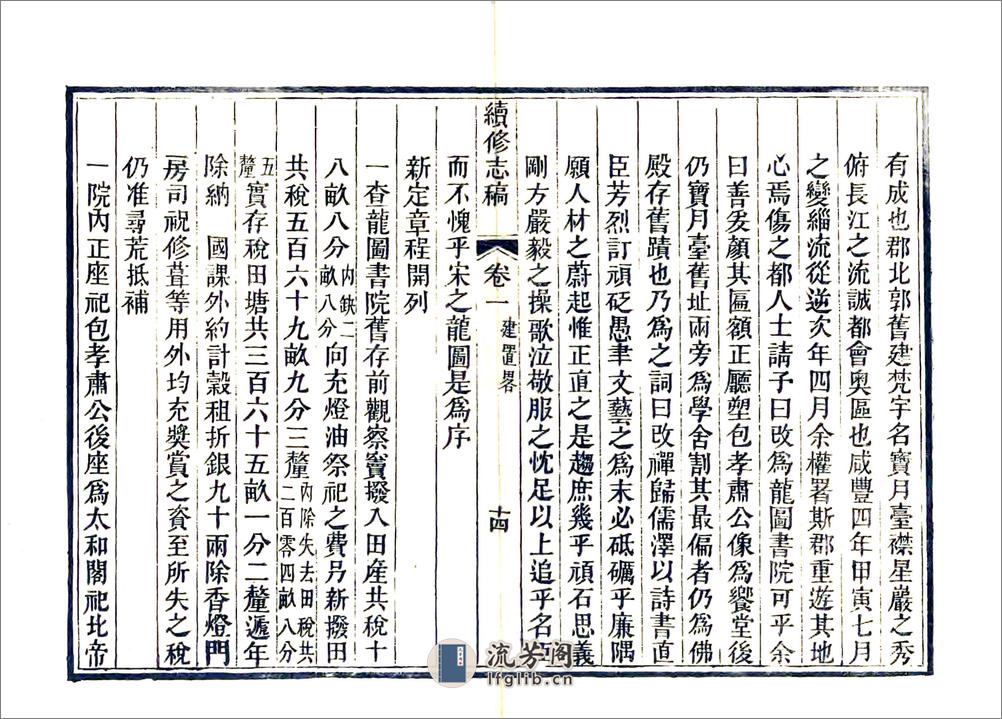 有成也郡北郭舊建梵宇名寶月臺襟星巖之秀
俯長江之流誠都會奧區也咸豐四年甲寅七月
之變緇流從逆次年四月余權署斯郡重遊其地
心焉傷之都人士請予曰改為龍圖書院可乎余
曰善爰顏其區額正廳塑包孝肅公像為饗堂後
仍寶月臺舊址兩旁為學舍割其最偏者仍為佛
殿存舊蹟也乃為之詞曰改禪歸儒澤以詩書直
臣芳烈訂頑砭愚聿文藝之為末必砥礪乎廉隅
願人材之蔚起惟正直之是趨庶幾乎頑石思義
剛方嚴毅之操歌泣敬服之忱足以上追乎名
而不愧乎宋之龍圖是為序
新定章程開列
一查龍圖書院舊存前觀察竇撥入田産共稅十
八畝八分內缺二畝八分向充燈油祭祀之費另新撥田
共稅五百六十九畝九分三釐內除失去田稅共二百零四畝八分
五釐實存稅田塘共三百六十五畝一分二釐遞年
除納 國課外約計穀租折銀九十兩除香燈門
房司祝修葺等用外均充獎賞之資至所失之稅
仍准尋荒抵補
一院內正座祀包孝肅公後座為太和閣祀北帝
續修志稿 卷一 建置畧 十四
流芳阁
lfglib.cn